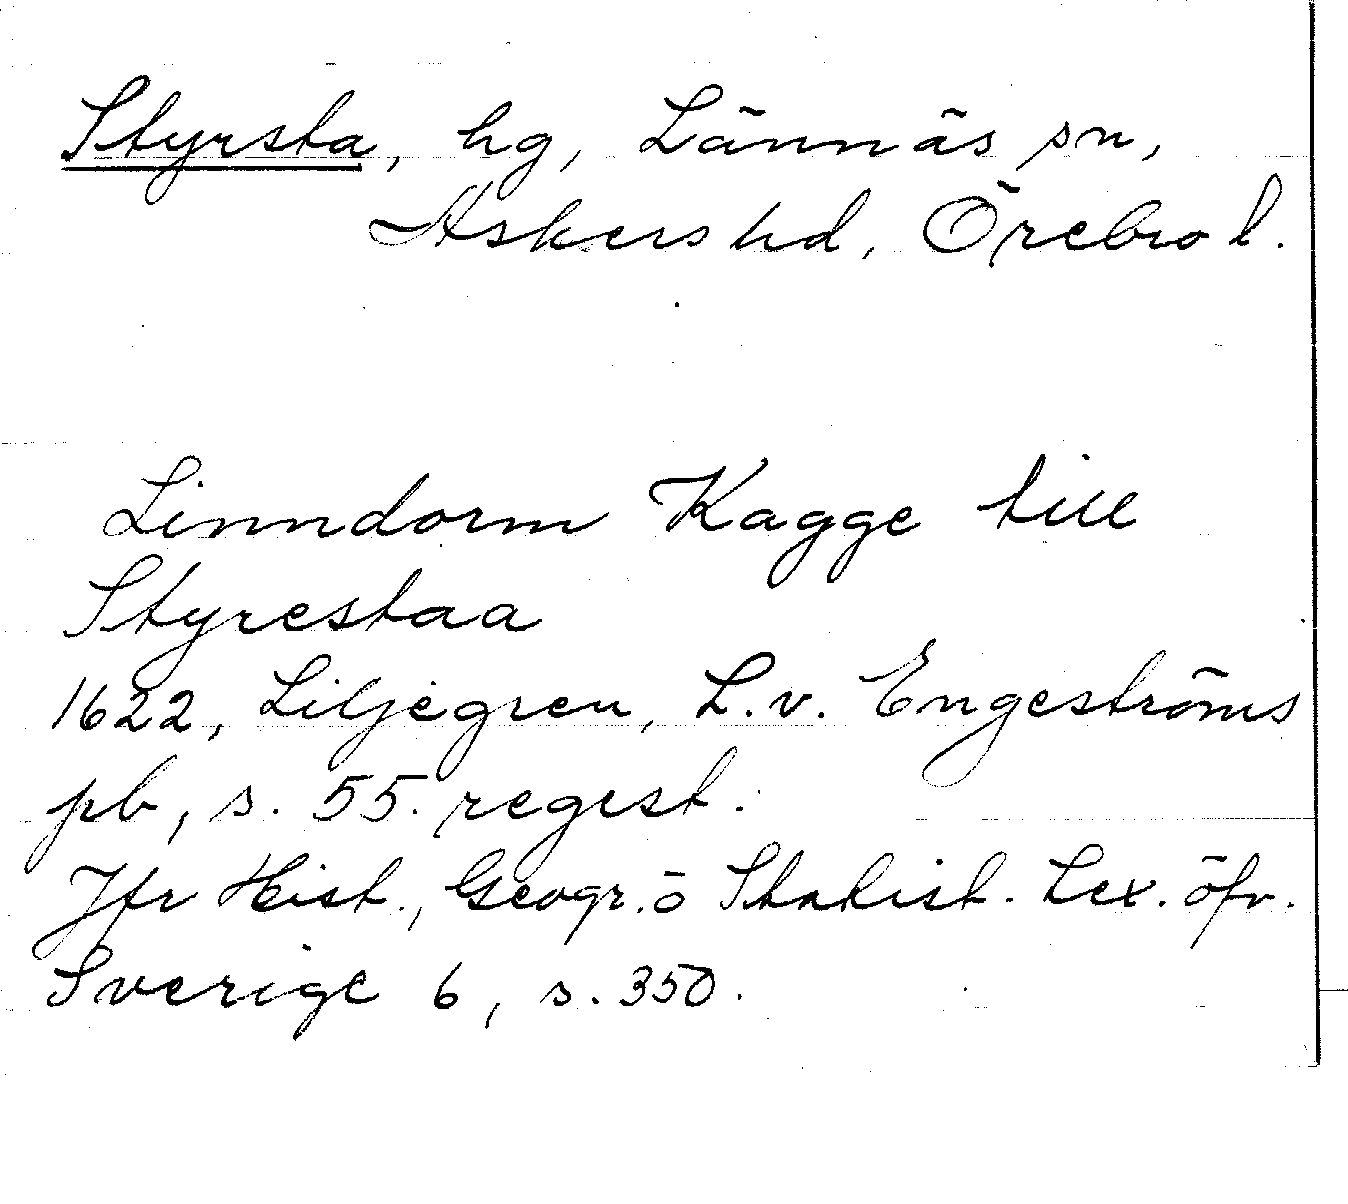 Styrsta, hg, Lännäs sn,
Askers hd, Örebro l.
Linndorm Kagge till
Styrestaa
1622, Liljegren, L. v. Engeströms
pb, s. 55. regest.
Jfr Hist., Geogr. o Statist. Lex. öfv.
Sverige 6, s. 350.